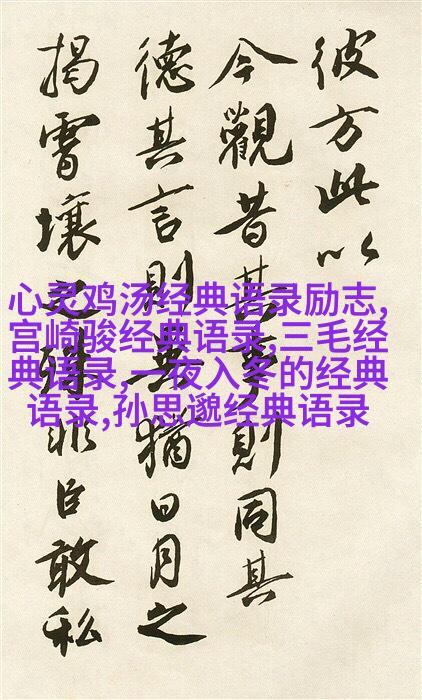 彼方此以
今觀昔其事則同其
德其言則無猶日月之
揭霄壤之殊非臣敢私
心灵鸡汤经典语录励志,
宫崎骏经典语录,三毛经
典语录,一夜入冬的经典
语录,孙思邈经典语录